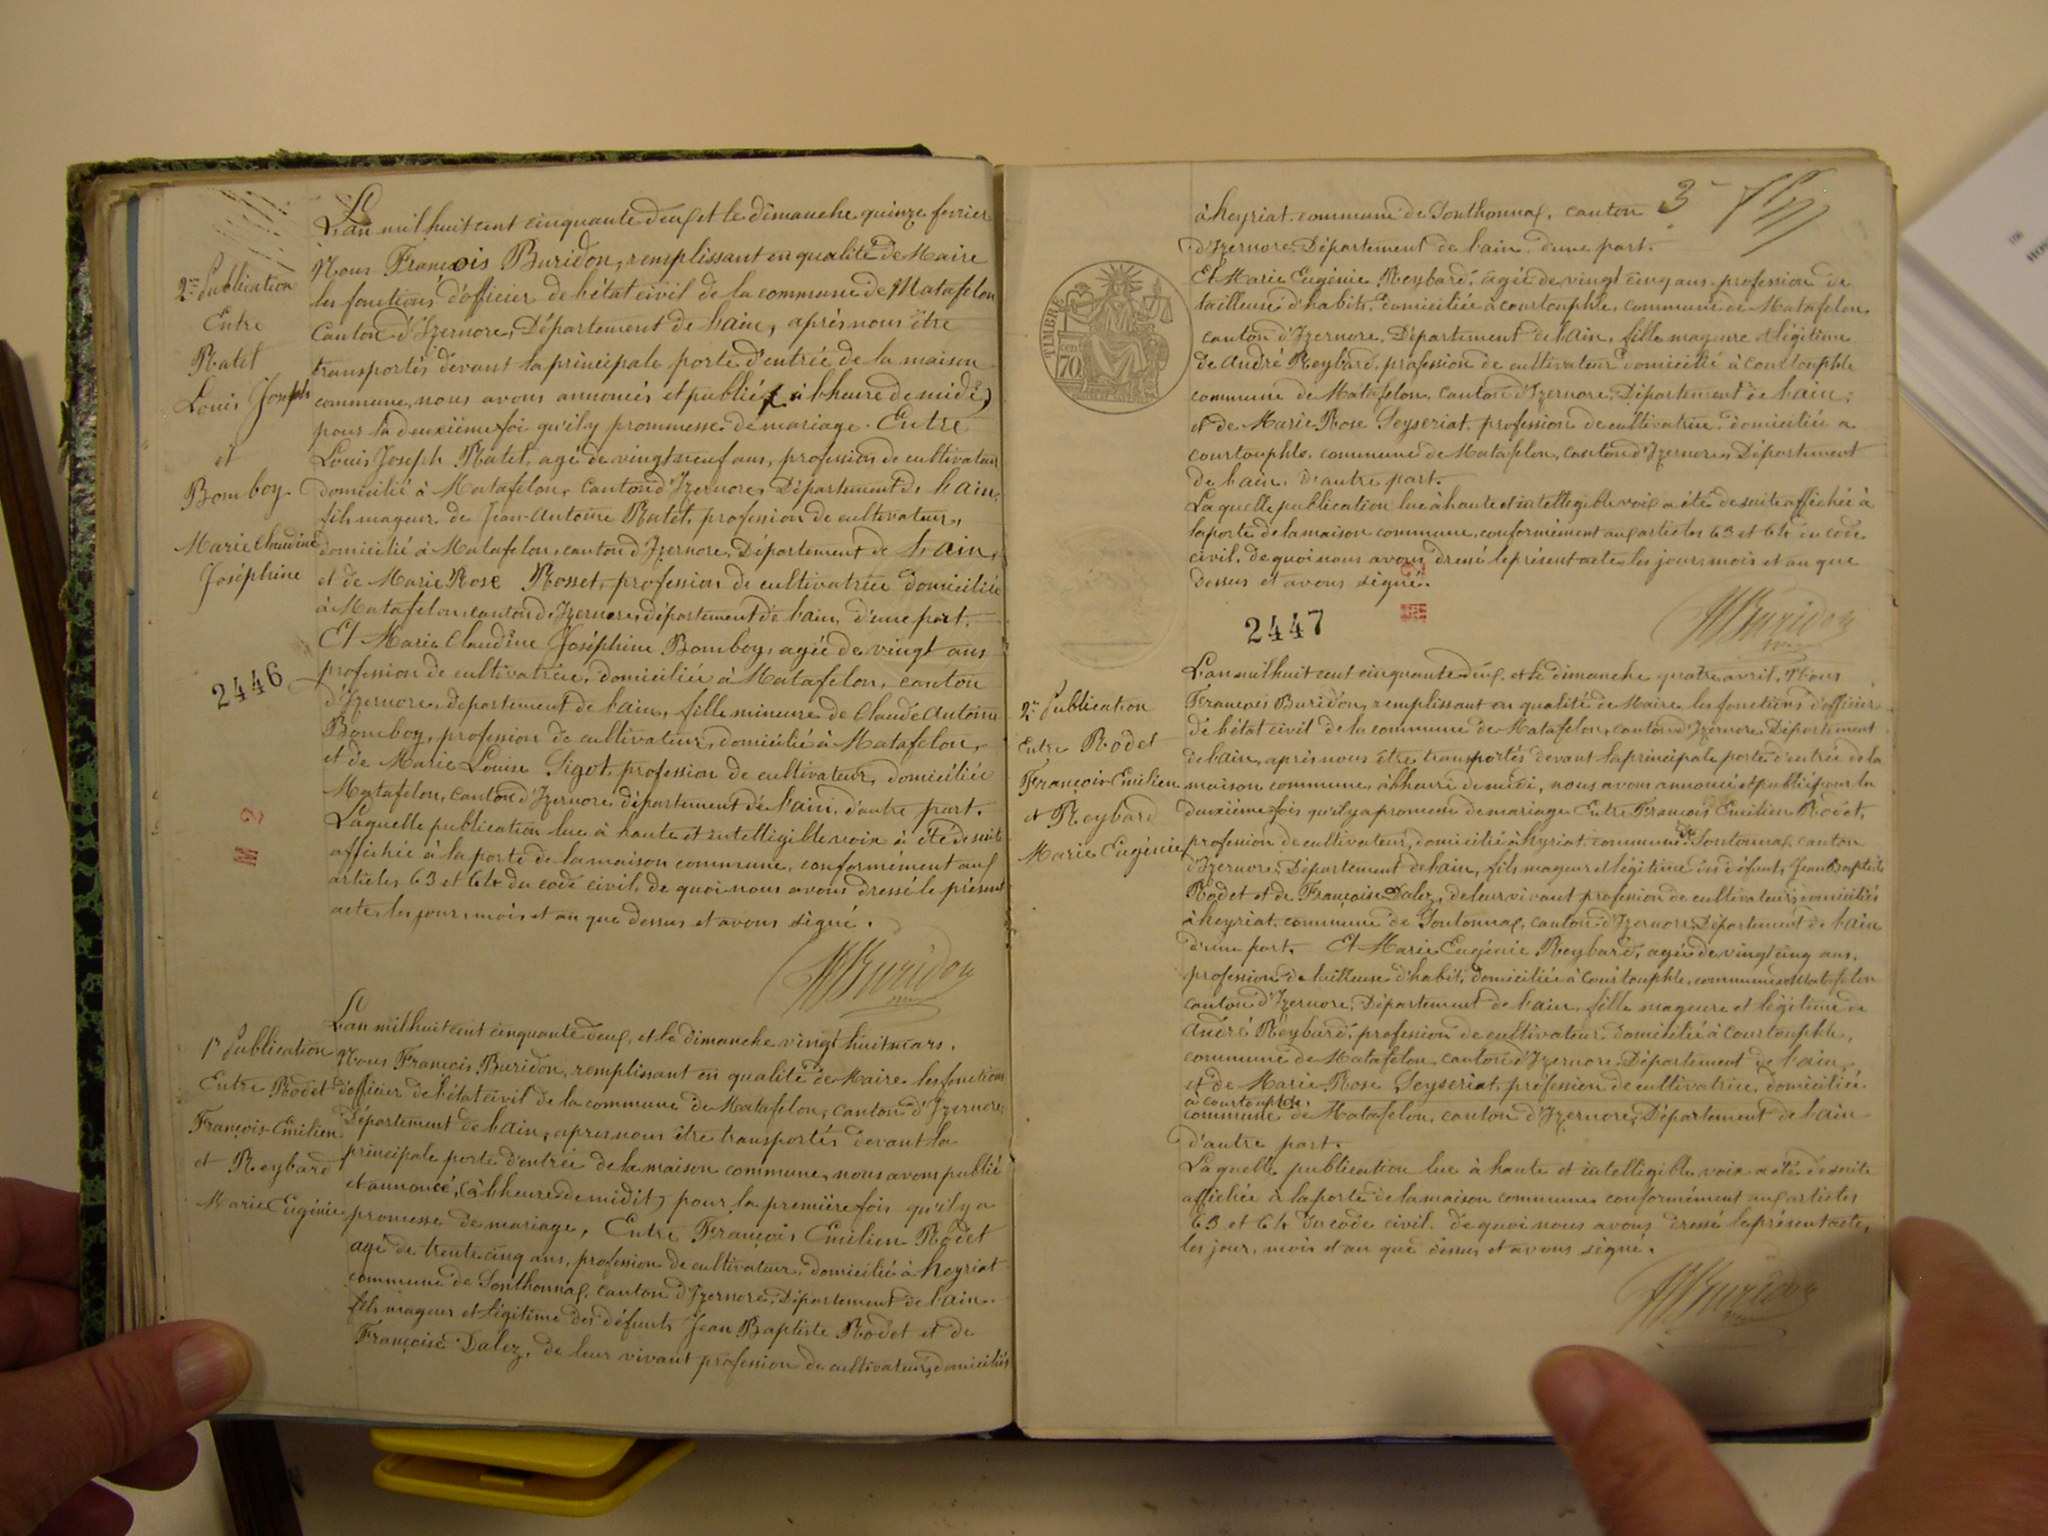 L'an mil huit cent cinquante deux et le dimanche quinze fevrier
2me Publication
Entre
Ratet
Louis Joseph
et
Bomboy
Marie Claudine
Joséphine
Nous François Buridon, remplissant en qualité de Maire
les fonctions d'officier de l'état civil de la commune de Matafelon
Canton d'Izernore, Département de l'ain, après nous être
transportés devant la principale porte d'entrée de la maison
commune, nous avons annoncés et publiés (à l'heure de midi)
pour la deuxième foi qu'il y prommesse de mariage. Entre
Louis Joseph Ratet, agé de vingt neuf ans, profession de cultivateur
domicilié à Matafelon, Canton d'Izernore, Département de l'ain,
fils mageur de Jean-Antoine Ratet, profession de cultivateur,
domicilié à Matafelon, canton d'Izernore, Département de l'ain,
et de Marie Rose Rosset, profession de cultivatrice domiciliée
à Matafelon, canton d'Izernore, département de l'ain, d'une part.
Et Marie Claudine Joséphine Bomboy, agée de vingt ans
profession de cultivatrice, domiciliée à Matafelon, canton
d'Izernore, departement de l'ain, fille mineure de Claude Antoine
Bomboy, profession de cultivateur, domicilié à Matafelon,
et de Marie Louise Sigot, profession de cultivateur, domiciliée
Matafelon, canton d'Izernore, département de l'ain, d'autre part.
Laquelle publication lue à haute et intelligible voix à été de suite
affichée à la porte de la maison commune, conformément aux
articles 63 et 64 du code civil, de quoi nous avons dressé le présent
acte, les jour, mois et an que dessus et avons signé.
2446
Buridon
L'an mil huit cent cinquante deux, et le dimanche vingt huit mars.
1re Publication
Entre Rodet
François-Emilien
et Reybard
Marie Eugénie
Nous François Buridon, remplissant en qualité de Maire les fonctions
d'officier de l'état civil de la commune de Matafelon, canton d'Izernore,
Département de l'ain, apres nous être transportés devant la
principale porte d'entrée de la maison commune, nous avons publié
et annoncé, (à l'heure de midit) pour la première fois qu'il y a
promesse de mariage, Entre François Emilien Rodet
agé de trente cinq ans, profession de cultivateur, domicilié à heyriat
commune de Sonthonnax, canton d'Izernore, Département de l'ain.
fils mageur et légitime des défunts Jean Baptiste Rodet et de
Françoise Dalez, de leur vivant profession de cultivateurs, domiciliés
3
à heyriat, commune de Sonthonnax, canton
d'Izernore, Département de l'ain, d'une part.
TIMBRE
70
Et Marie Eugénie Reybard, agée de vingt cinq ans, profession de
tailleuse d'habits, domiciliée à courtouphle, commune de Matafelon,
canton d'Izernore, Département de l'ain, fille mageure et légitime
de André Reybard, profession de cultivateur domicilié à Courtouphle
commune de Matafelon, canton d'Izernore, Département de l'ain;
et de Marie Rose Seyseriat, profession de cultivatrice, domiciliée a
courtouphle, commune de Matafelon, canton d'Izernore, Département
de l'ain, d'autre part.
Laquelle publication lue à haute et intelligible voix a été de suite affichée à
la porte de la maison commune, conformément aux articles 63 et 64 du code
civil, de quoi nous avons dressé le présent acte les jour, mois et an que
dessus et avons signé.
2447
Buridon
L'an mil huit cent cinquante deux, et le dimanche quatre avril, Nous
2e Publication
Entre Rodet
François-Emilien
et Reybard
Marie Eugénie
François Buridon, remplissant en qualité de Maire les fonctions d'officier
de l'état civil de la commune de Matafelon, canton d'Izernore, Département
de l'ain, après nous être transportés devant la principale porte d'entrée de la
maison commune, à l'heure de midi, nous avons annoncé et publié pour la
deuxième fois qu'il y a promesse de mariage Entre François Emilien Rodet,
profession de cultivateur, domicilié à heyriat commune de Sontonnax, canton
d'Izernore, Département de l'ain, fils mageur et légitime des défunts Jean Baptiste
Rodet et de Françoise Dalez, de leur vivant profession de cultivateurs, domiciliés
à heyriat, commune de Sontonnax, canton d'Izernore, Département de l'ain
d'une part. Et Marie Eugénie Reybard, agée de vingt cinq ans,
profession de tailleuse d'habit, domiciliée à Courtouphle, commune de Matafelon
canton d'Izernore, Département de l'ain, fille mageure et légitime de
André Reybard, profession de cultivateur, domicilié à Courtouphle,
commune de Matafelon, canton d'Izernore, Département de l'ain,
et de Marie Rose Seyseriat, profession de cultivatrice, domiciliée
à courtouphle,
commune de Matafelon, canton d'Izernore, Département de l'ain
d'autre part.
Laquelle publication lue à haute et intelligible voix a été de suite
affichée à la porte de la maison commune conformément aux articles
63 et 64 du code civil. de quoi nous avons dressé le présent acte,
les jour, mois et an que dessus et avons signé.
Buridon